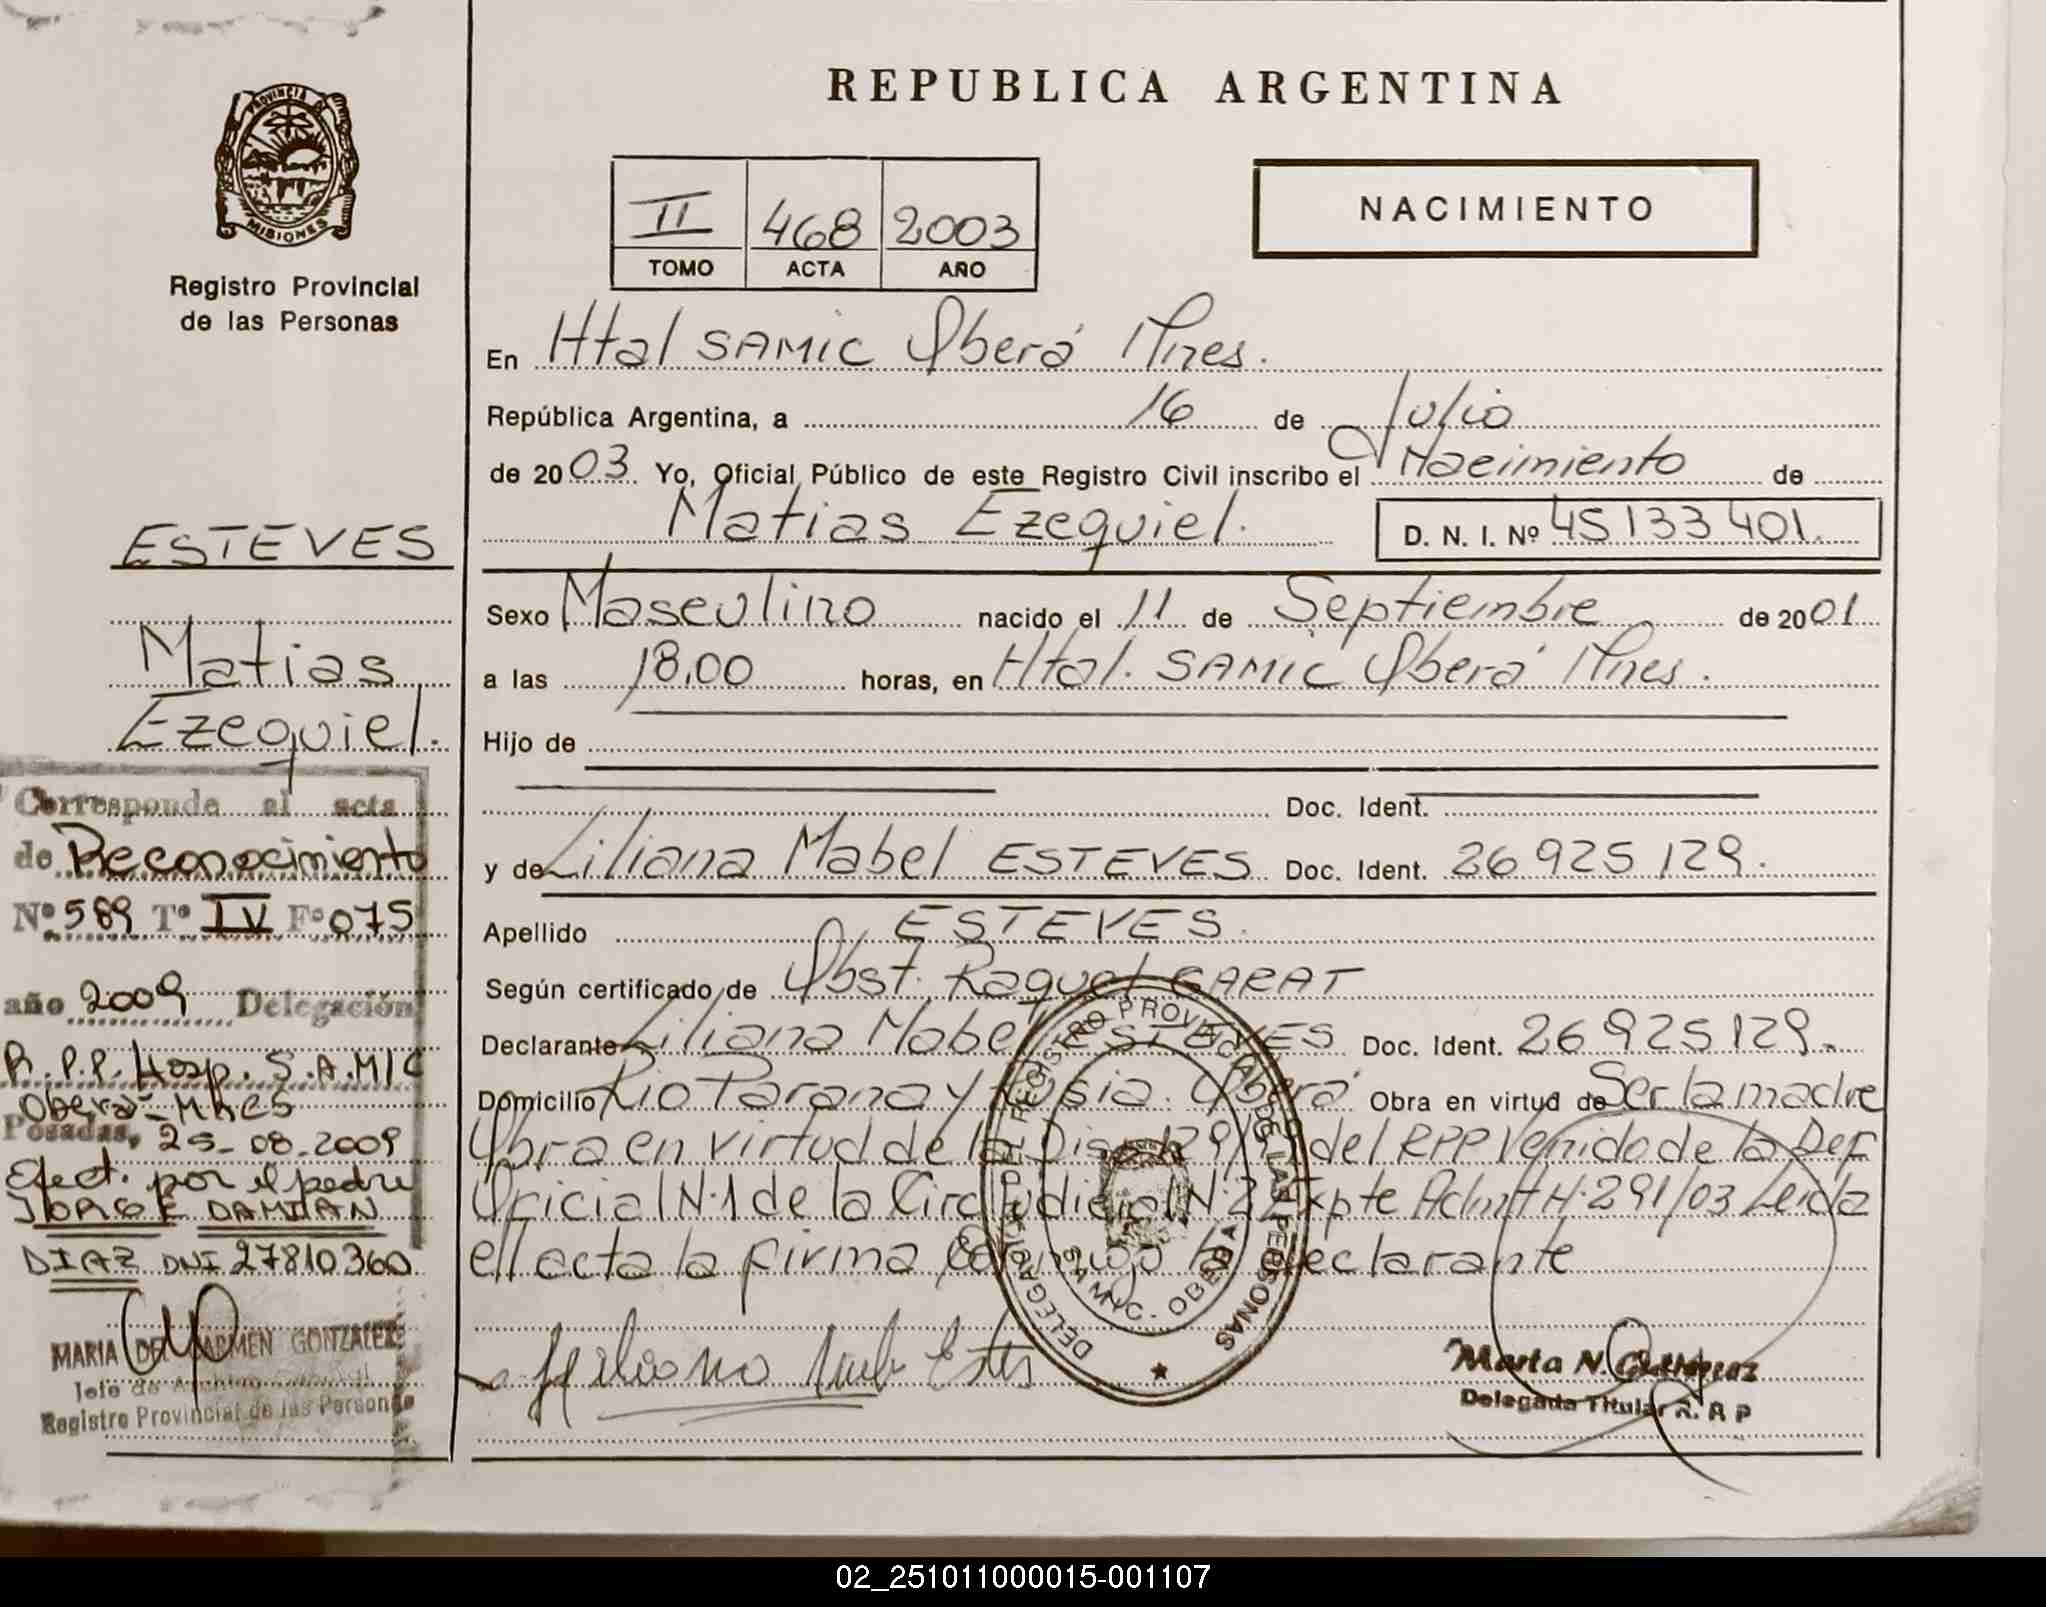 PROVINCIA DE
MISIONES
Registro Provincial
de las Personas
ESTEVES
Matias
Ezequiel.
Corresponde al acta
de Reconocimiento
Nº 589 Tº IV Fº 075
año 2009 Delegación
R.P.P. Hosp. S.A.M.I.C
Oberá - Mnes
Posadas, 25-08-2009
Efect. por el padre
JORGE DAMIAN
DIAZ DNI 27810360
MARIA DEL CARMEN GONZALEZ
Jefe de
Registro Provincial de las Personas
REPUBLICA ARGENTINA
II 468 2003
TOMO ACTA AÑO
NACIMIENTO
En Htal SAMIC Oberá Mnes.
República Argentina, a 16 de Julio
de 2003 Yo, Oficial Público de este Registro Civil inscribo el Nacimiento de
Matias Ezequiel. D. N. I. Nº 45133401.
Sexo Masculino nacido el 11 de Septiembre de 2001
a las 18,00 horas, en Htal. SAMIC Oberá Mnes.
Hijo de
Doc. Ident.
y de Liliana Mabel ESTEVES Doc. Ident. 26925129.
Apellido ESTEVES.
Según certificado de Obst. Raquel GARAT
Declarante Liliana Mabel ESTEVES Doc. Ident. 26925129.
Domicilio Rio Parana y Oberá Obra en virtud de Ser la madre
Obra en virtud de la Disp 129/ del RPP Venido de la Def
Oficial N·1 de la Circ Judicial N·2 Expte Admt H·291/03 Leida
el acta la firma conmigo la declarante
DELEGACION REGISTRO PROVINCIAL DE LAS PERSONAS
SAMIC - OBERA
Marta N. Gutierrez
Delegada Titular R. P. P
02_251011000015-001107